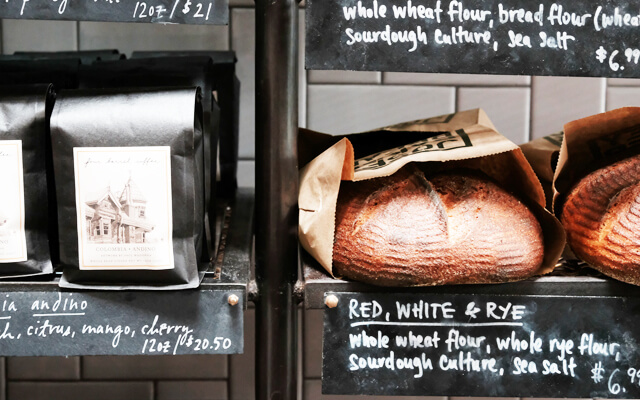 12oz / $21
whole wheat flour, bread flour (whea
sourdough culture, sea salt
$6.99
four barrel coffee
COLOMBIA ANDINO
ia andino
h, citrus, mango, cherry
12oz / $20.50
RED, WHITE & RYE
whole wheat flour, whole rye flour,
sourdough culture, sea salt
$6.99